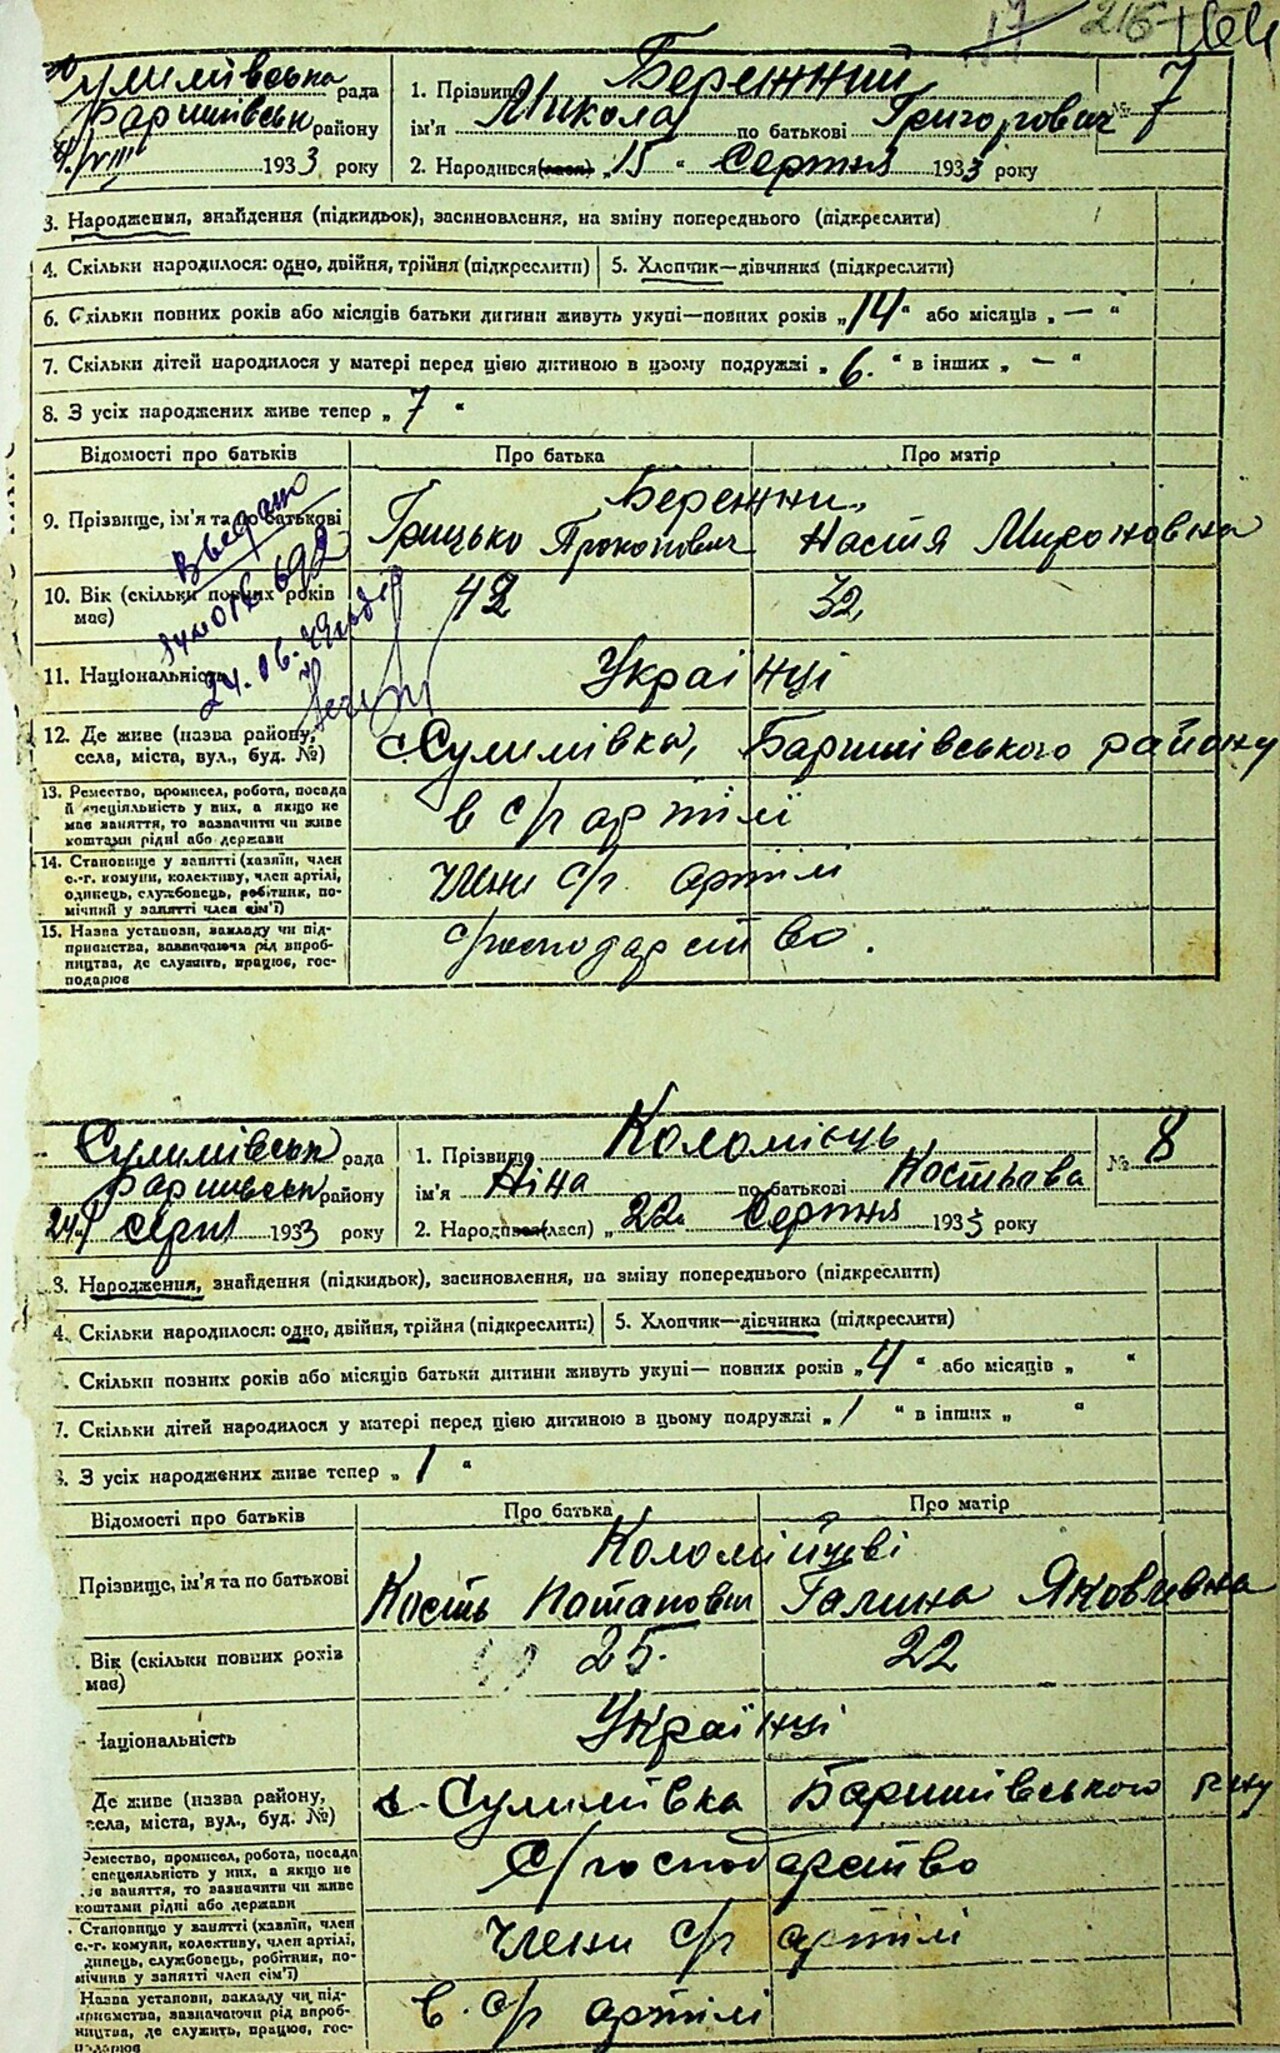 17 216 164
Сулимівська рада
Баришівськ району
1933 року
1. Прізвище Бережний
ім'я Микола по батькові Григорович
№ 7
2. Народився(лася) „15“ Серпня 1933 року
3. Народження, знайдення (підкидьок), засиновлення, на зміну попереднього (підкреслити)
4. Скільки народилося: одно, двійня, трійня (підкреслити) 5. Хлопчик—дівчинка (підкреслити)
6. Скільки повних років або місяців батьки дитини живуть укупі—повних років „14“ або місяців „—“
7. Скільки дітей народилося у матері перед цією дитиною в цьому подружжі „6.“ в інших „—“
8. З усіх народжених живе тепер „7“
Відомості про батьків Про батька Про матір
9. Прізвище, ім'я та по батькові
Бережни
Грицько Прокопович Настя Мироновна
10. Вік (скільки повних років має) 42 32
11. Національність Українці
12. Де живе (назва району, села, міста, вул., буд. №)
с. Сулимівка, Баришівського району
13. Ремество, промисел, робота, посада
й спеціяльність у них, а якщо не
має заняття, то зазначити чи живе
коштами рідні або держави
в с/г артілі
14. Становище у занятті (хазяїн, член
с.-г. комуни, колективу, член артілі,
одинець, службовець, робітник, по-
мічний у занятті член сім'ї)
Члени с/г. артілі
15. Назва установи, закладу чи під-
приємства, зазначаючи рід вироб-
ництва, де служить, працює, гос-
подарює
с/господарство.
24.06.
Сулимівськ рада
Баришівськ району
24/ серпн 1933 року
1. Прізвище Коломієць
ім'я Ніна по батькові Костьова
№ 8
2. Народився(лася) „22“ Серпня 1933 року
3. Народження, знайдення (підкидьок), засиновлення, на зміну попереднього (підкреслити)
4. Скільки народилося: одно, двійня, трійня (підкреслити) 5. Хлопчик—дівчинка (підкреслити)
. Скільки повних років або місяців батьки дитини живуть укупі— повних років „4“ або місяців „ “
7. Скільки дітей народилося у матері перед цією дитиною в цьому подружжі „1“ в інших „ “
. З усіх народжених живе тепер „1“
Відомості про батьків Про батька Про матір
Прізвище, ім'я та по батькові
Коломійцеві
Кость Потапович Галина Яковлевна
. Вік (скільки повних років має) 25. 22
Національність Українці
Де живе (назва району, села, міста, вул., буд. №)
с. Сулимівка Баришівського р-ну
Ремество, промисел, робота, посада
спецеяльність у них, а якщо не
має заняття, то зазначити чи живе
коштами рідні або держави
С/господарство
. Становище у занятті (хазяїн, член
с.-г. комуни, колективу, член артілі,
динець, службовець, робітник, по-
мічник у занятті член сім'ї)
Члени с/г артілі
Назва установи, закладу чи під-
приємства, зазначаючи рід вироб-
ництва, де служить, працює, гос-
подарює
в. с/г артілі